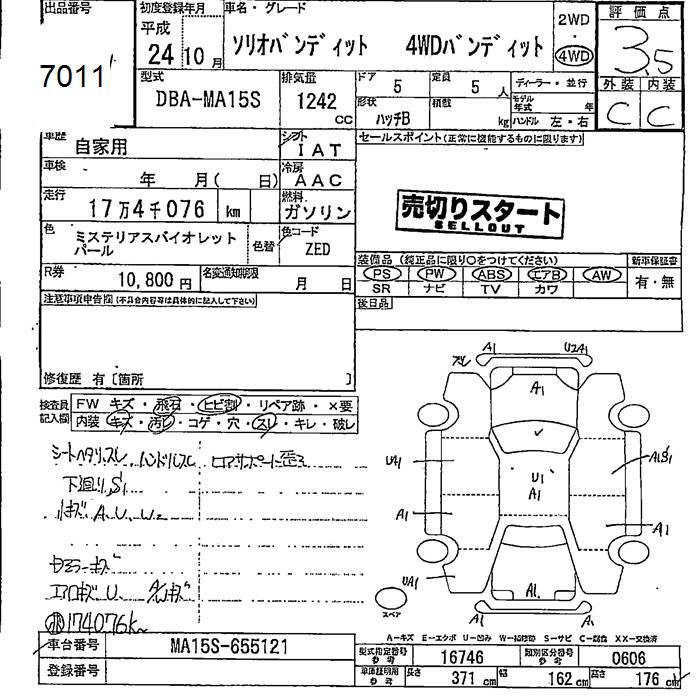 出品番号 初度登録年月 車名・グレード 2WD 評価点
平成 24 10月 ソリオバンディット 4WDバンディット 4WD 3.5
7011
型式 排気量 ドア 5 定員 5人 ディーラー・並行 外装 内装
DBA-MA15S 1242 CC 形状 ハッチB 積載 kg モデル年式 年 ハンドル 左・右 C C
車歴 自家用 シフト IAT セールスポイント(正常に機能するものに限ります)
車検 年 月( 日) 冷房 AAC
走行 17万4千076 km 燃料 ガソリン 売切りスタート
SELLOUT
色 ミステリアスバイオレット
パール 色替 色コード ZED
装備品(純正品に限り○をつけてください) 新車保証書
R券 10,800円 名変通知期限 月 日 PS PW ABS エアB AW 有・無
SR ナビ TV カワ
注意事項申告欄(不具合内容等は具体的に記入して下さい) 後日品
修復歴 有[箇所 ]
検査員 FW キズ・飛石・ヒビ割・リペア跡・×要
記入欄 内装 キズ・汚レ・コゲ・穴・スレ・キレ・破レ
シートヘタリ、スレ ハンドルスレ
下廻り、S1
小キズ A.U.W.
174076K
A1 U2A1
A1
UA1 U1 A1S1
A1
A1 A1
UA1 A1
A1 A1
スペア
A-キズ E-エクボ U-凹み W-補修跡 S-サビ C-腐食 XX-交換済
車台番号 MA15S-655121 型式指定番号 参考 16746 類別区分番号 参考 0606
登録番号 車庫証明用 参考 長さ 371 cm 幅 162 cm 高さ 176 cm